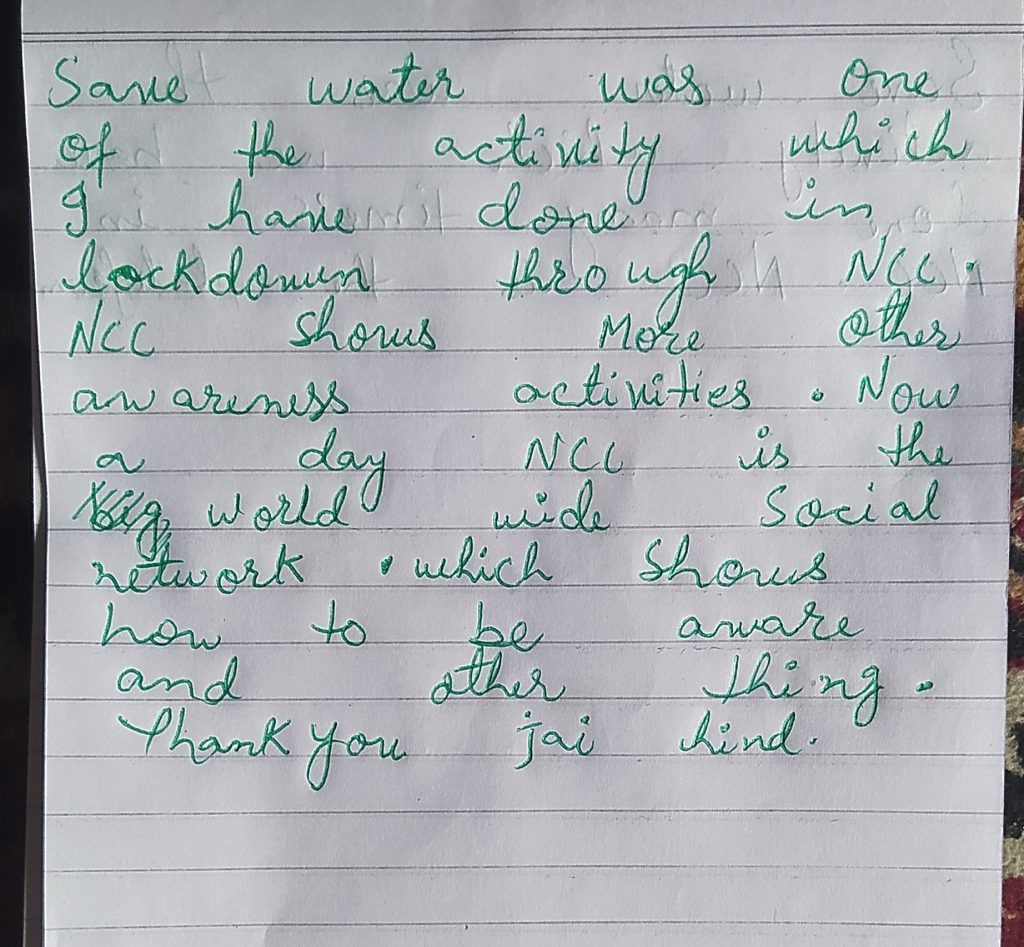 Save water was one
of the activity which
I have done in
lockdown through NCC.
NCC shows More other
awareness activities. Now
a day NCC is the
world wide Social
network. which shows
how to be aware
and other thing.
Thank you jai hind.